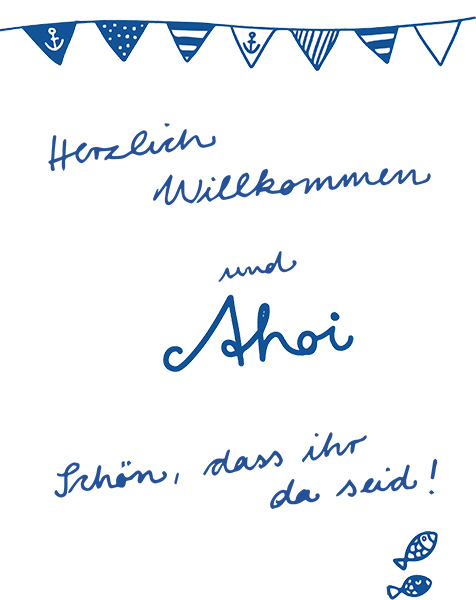 Herzlich
Willkommen
und
Ahoi
Schön, dass ihr
da seid!